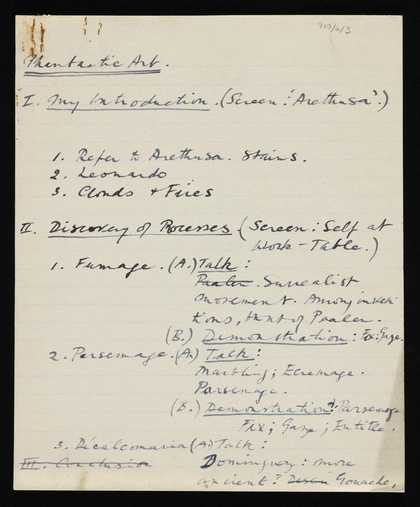 Phantastic Art.
I. My Introduction. (Screen: 'Arethusa'.)
1. Refer to Arethusa. Stains.
2. Leonardo
3. Clouds & Fires
II. Discovery of Processes (Screen: Self at
Work-Table.)
1. Fumage. (A.) Talk:
Paalen. Surrealist
movement. Among inven
tions, that of Paalen.
(B.) Demonstration: Fix; Gaze.
2. Parsemage. (A) Talk:
Marbling; Ecremage.
Parsemage.
(B.) Demonstration: Parsemage
Fix; Gaze; Entitle.
3. Décalcomania (A.) Talk:
III. Conclusion
Dominguez: more
ancient? Gouache,